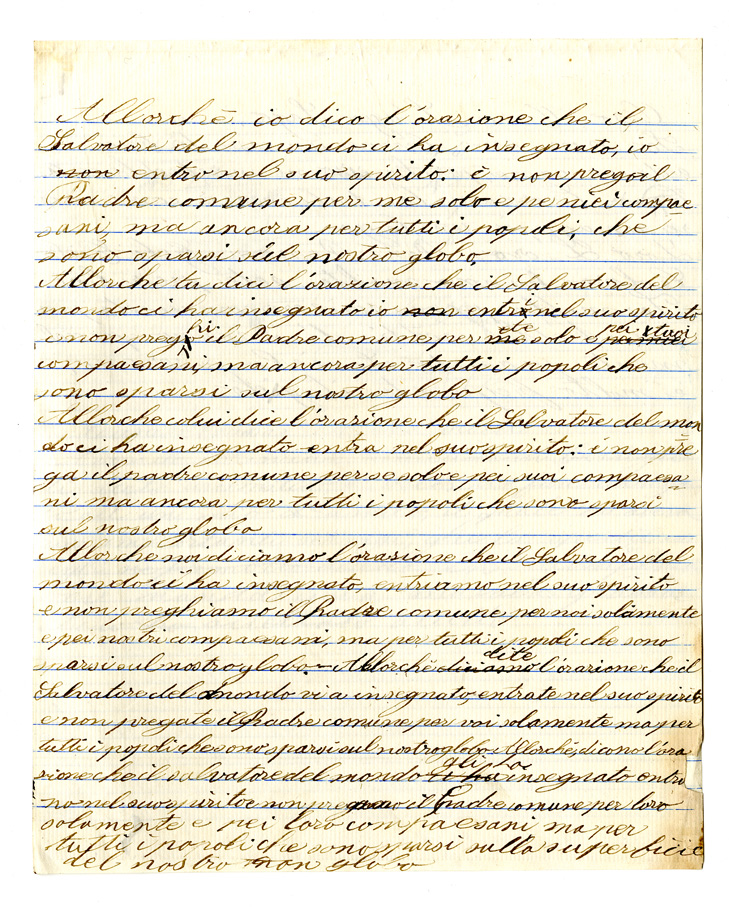 Allorchè io dico l'orazione che il
Salvatore del mondo ci ha insegnato, io
non entro nel suo spirito: è non prego il
Padre comune per me solo e pe miei compae-
sani, ma ancora per tutti i popoli, che
sono sparsi sul nostro globo.
Allorche tu dici l'orazione che il Salvatore del
mondo ci ha insegnato io non entri nel suo spirito
e non preghi il Padre comune per me te solo e pei miei tuoi
compaesani, ma ancora per tutti i popoli che
sono sparsi sul nostro globo
Allorche colui dice l'orazione che il Salvatore del mon
do ci ha insegnato entra nel suo spirito: è non pre
ga il padre comune per se solo e pei suoi compaesa
ni ma ancora per tutti i popoli che sono sparsi
sul nostro globo
Allorche noi diciamo l'orazione che il Salvatore del
mondo ci ha insegnato, entriamo nel suo spirito
e non preghiamo il Padre comune per noi solamente
e pei nostri compaesani, ma per tutti i popoli che sono
sparsi sul nostro globo - Allorchè diciamo dite l'orazione che il
Salvatore del mondo vi a insegnato, entrate nel suo spirito
e non pregate il Padre comune per voi solamente ma per
tutti i popoli che sono sparsi sul nostro globo. Allorchè, dicono l'ora
zione che il salvatore del mondo ci ha gli ha insegnato entra
no nel suo spirito e non pregano il Padre comune per loro
solamente e pei loro compaesani ma per
tutti i popoli che sono sparsi sulla superficie
del nostro mon globo